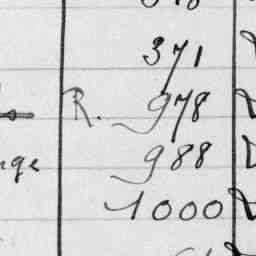 371
R. 978
nge 988
1000